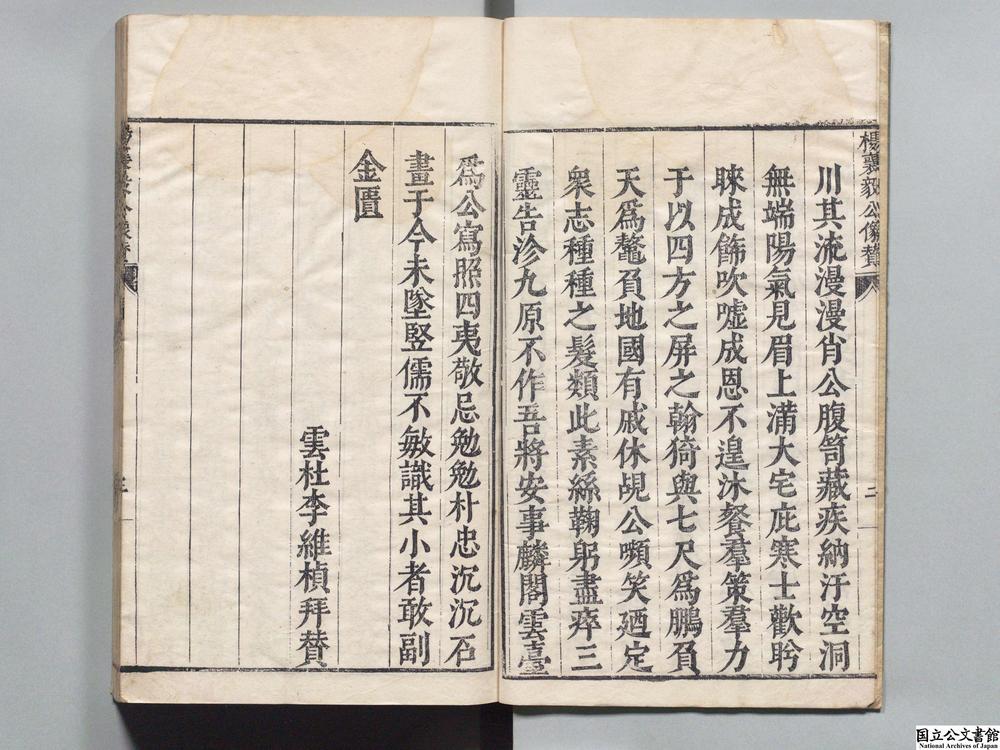 楊襄毅公像贊
二
川其流漫漫肖公腹笥藏疾納汙空洞
無端陽氣見眉上滿大宅庇寒士歡盻
睞成飾吹噓成恩不遑沐餐羣策羣力
于以四方之屏之翰猗與七尺爲鵬負
天爲鼇負地國有戚休覘公嚬笑廼定
衆志種種之髮類此素絲鞠躬盡瘁三
靈告沴九原不作吾將安事麟閣雲臺
爲公寫照四夷敬忌勉勉朴忠沉沉石
畫于今未墜竪儒不敏識其小者敢副
金匱
雲杜李維楨拜贊
三
国立公文書館
National Archives of Japan